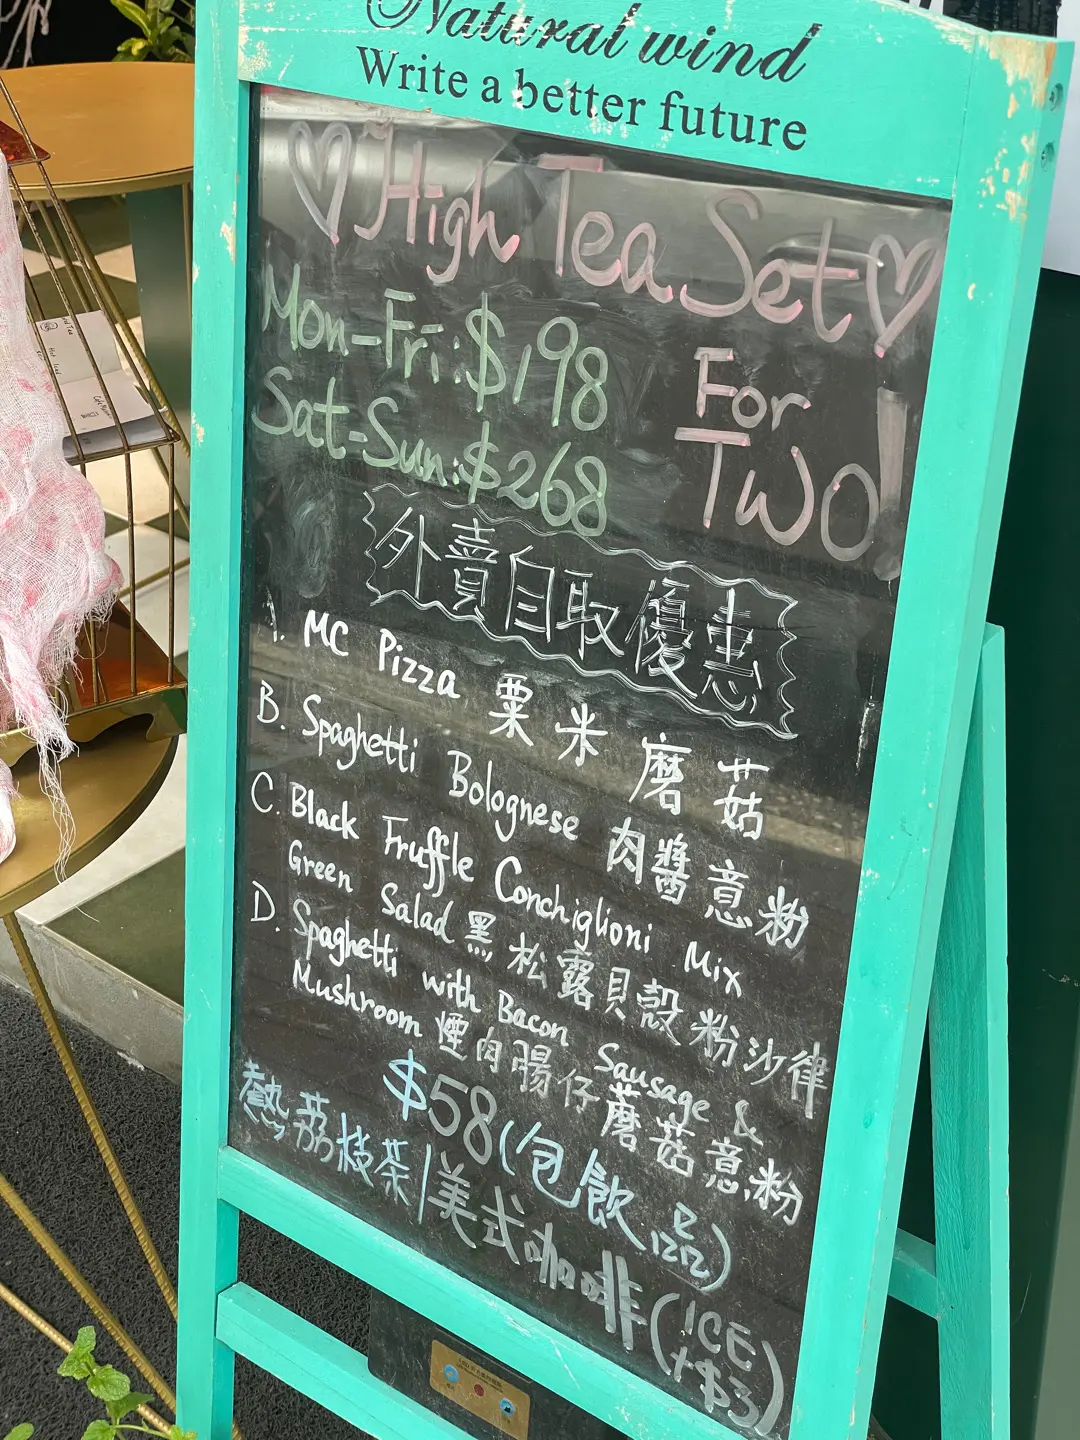 Natural wind
Write a better future
♡ High Tea Set ♡
Mon-Fri: $198
Sat-Sun: $268
For
TWO
外賣自取優惠
A. MC Pizza 粟米磨菇
B. Spaghetti Bolognese 肉醬意粉
C. Black Fruffle Conchiglioni Mix
Green Salad 黑松露貝殼粉沙律
D. Spaghetti with Bacon Sausage &
Mushroom 煙肉腸仔蘑菇意粉
$58 (包飲品)
熱荔枝茶/美式咖啡(ICE
+$3)